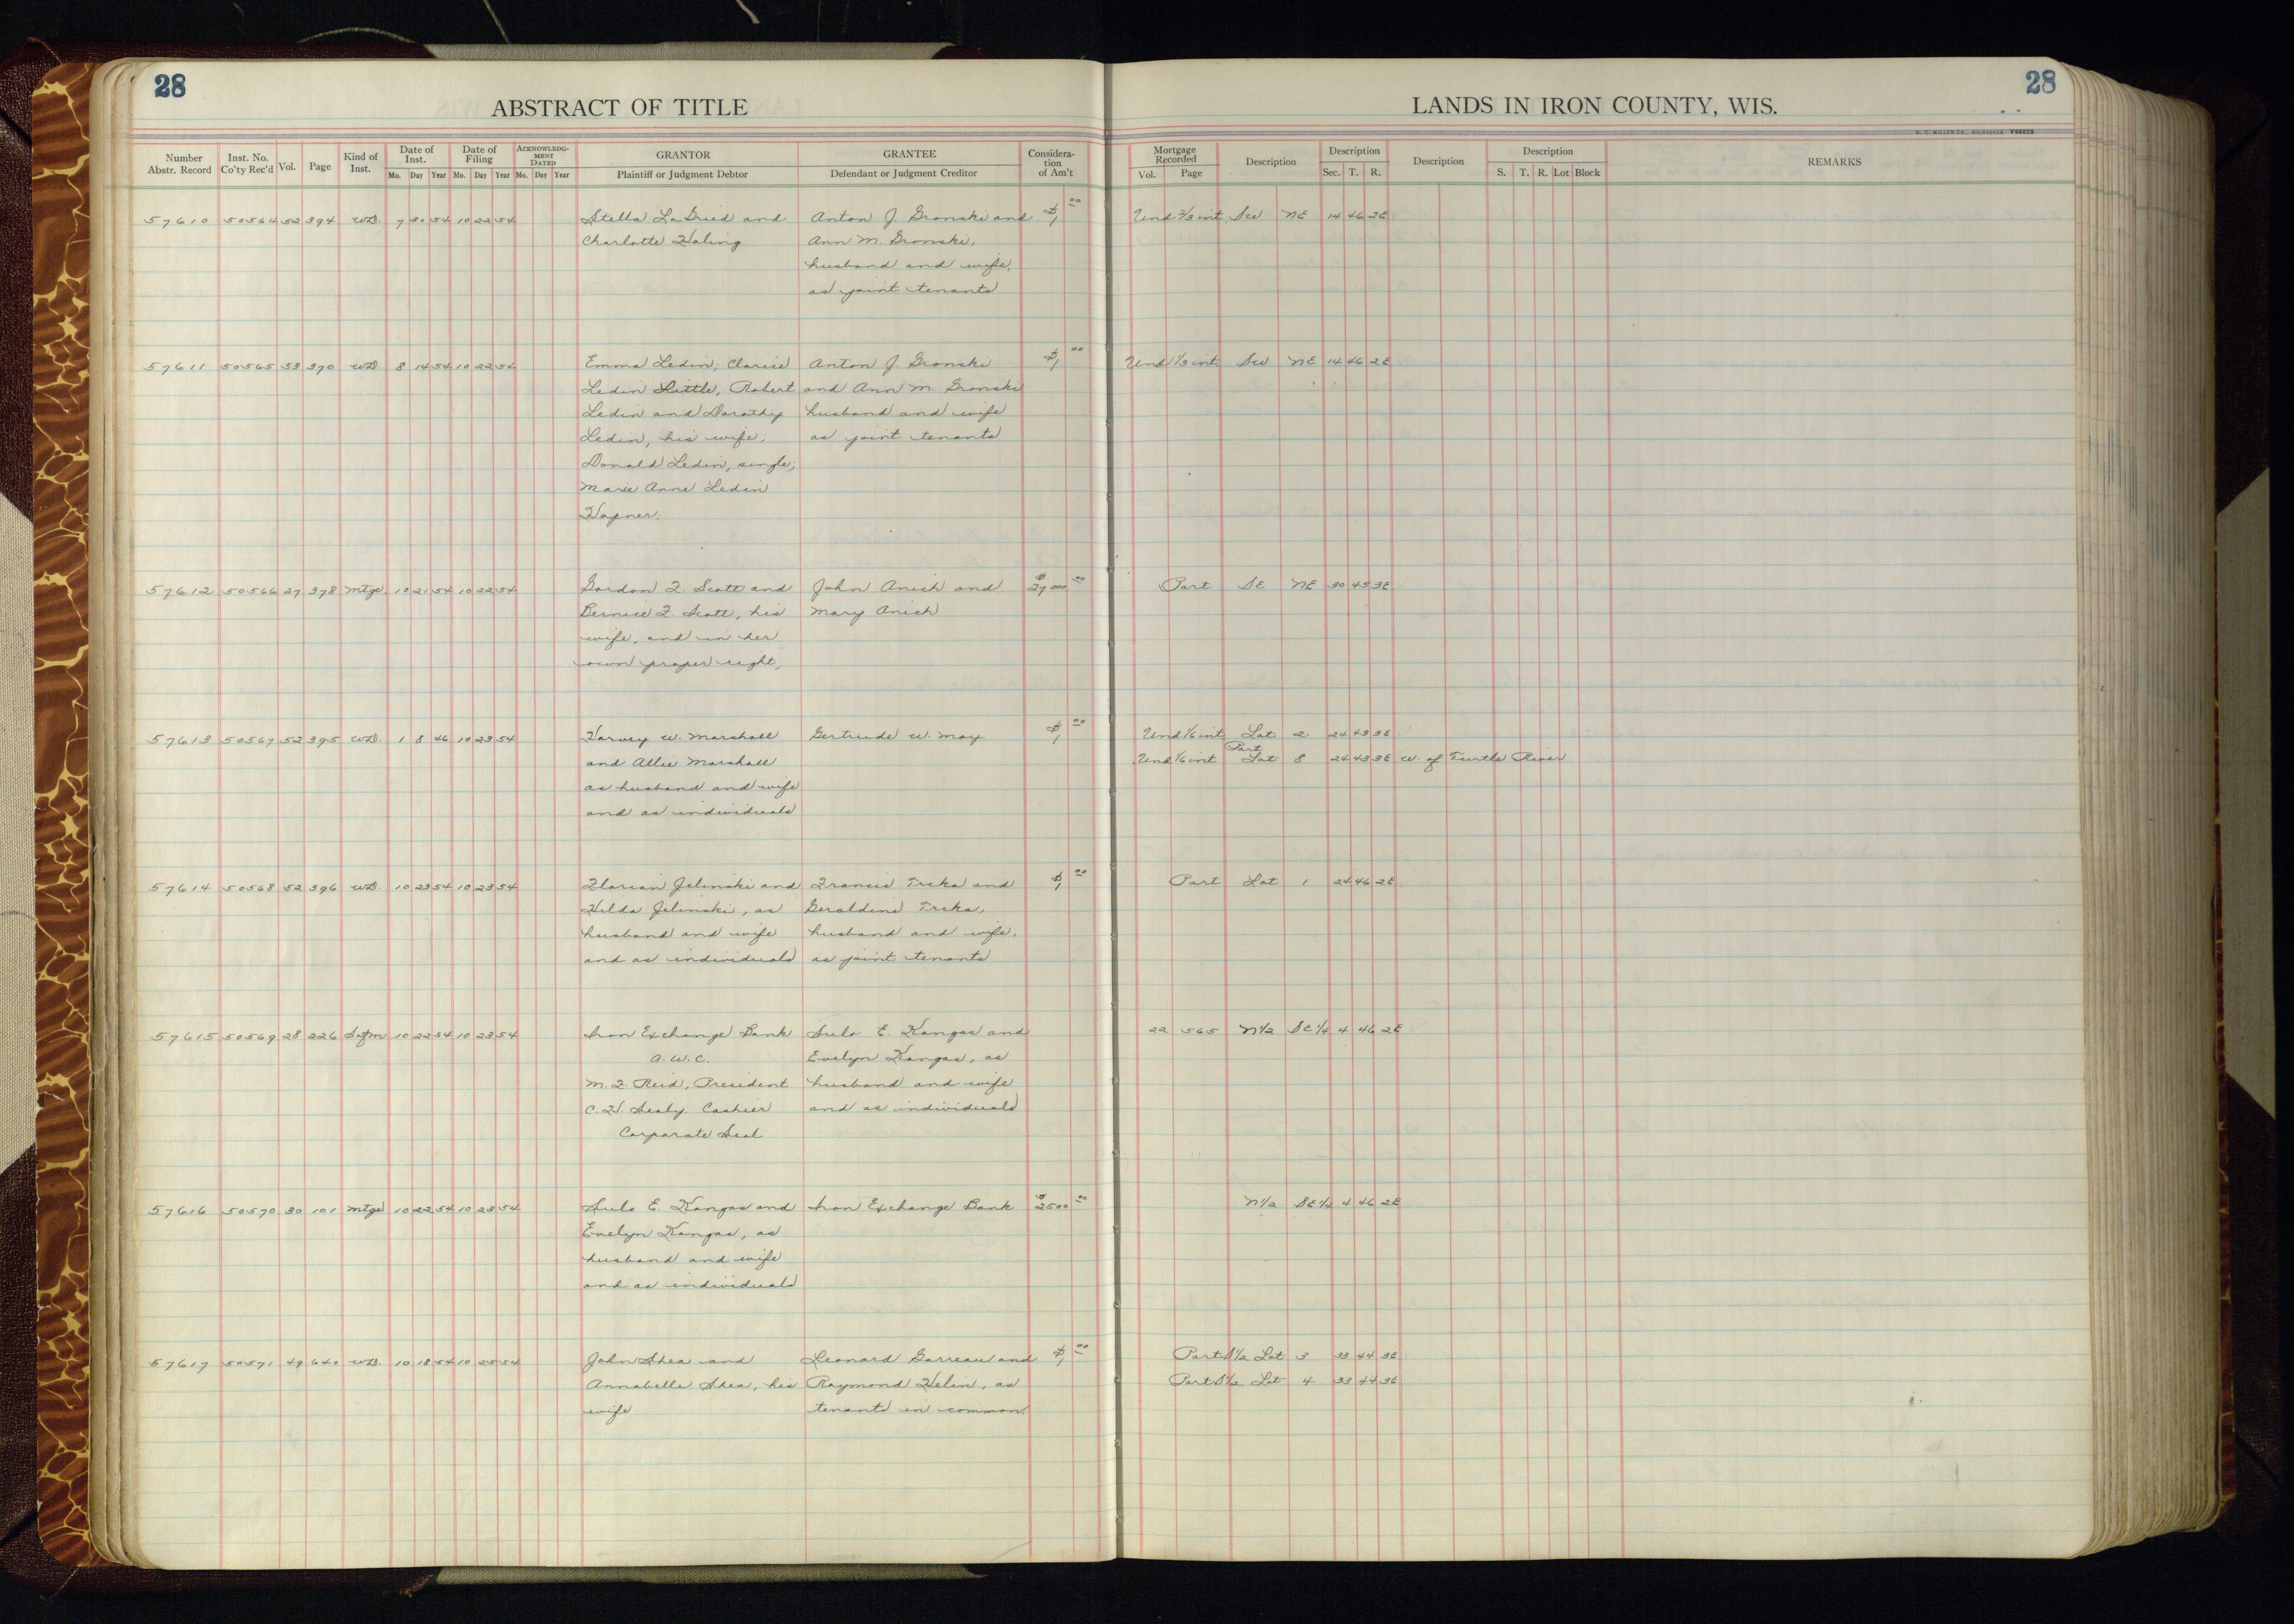 28
28
ABSTRACT OF TITLE
LANDS IN IRON COUNTY, WIS.
H. C. MILLER CO., MILWAUKEE Y66855
Number Abstr. Record Inst. No. Co'ty Rec'd Vol. Page Kind of Inst. Date of Inst. Mo. Day Year Date of Filing Mo. Day Year ACKNOWLEDGMENT DATED Mo. Day Year GRANTOR Plaintiff or Judgment Debtor GRANTEE Defendant or Judgment Creditor Consideration of Am't Mortgage Recorded Vol. Page Description Description Sec. T. R. Description Description S. T. R. Lot Block REMARKS
57610 50564 52 394 W.D. 7 30 54 10 22 54 Stella LaGried and Anton J. Gronski and $1 00 Und 2/3 int. SW NE 14 46 2E
Charlotte Haling Ann M. Gronski,
husband and wife,
as joint tenants
57611 50565 53 370 WD 8 14 54 10 22 54 Emma Ledin; Clarice Anton J. Gronski $1 00 Und 1/3 int. SW NE 14 46 2E
Ledin Little, Robert and Ann M. Gronski
Ledin and Dorothy husband and wife
Ledin, his wife; as joint tenants
Donald Ledin, single;
Marie Anne Ledin
Hapner;
57612 50566 27 378 Mtge 10 21 54 10 22 54 Gordon F. Scott and John Anich and $27000 00 Part SE NE 30 45 3E
Bernice F. Scott, his Mary Anich
wife, and in her
own proper right,
57613 50567 52 395 W.D. 1 8 46 10 23 54 Harvey W. Marshall Gertrude W. May $1 00 Und 1/6 int. Lot 2 24 43 3E
and Allie Marshall Und 1/6 int Part Lot 8 24 43 3E W. of Turtle River
as husband and wife
and as individuals
57614 50568 52 396 W.D. 10 23 54 10 23 54 Florian Jelinski and Francis Trcka and $1 00 Part Lot 1 24 46 2E
Hilda Jelinski, as Geraldine Trcka,
husband and wife husband and wife,
and as individuals as joint tenants
57615 50569 28 226 Satfm 10 22 54 10 23 54 Iron Exchange Bank Sulo E. Kangas and 22 565 N1/2 SE1/4 4 46 2E
A.W.C. Evelyn Kangas, as
M. F. Reid, President husband and wife
C. H. Sealy. Cashier and as individuals
Corporate Seal
57616 50570 30 101 Mtge 10 22 54 10 23 54 Sulo E. Kangas and Iron Exchange Bank $2500 00 N1/2 SE1/4 4 46 2E
Evelyn Kangas, as
husband and wife
and as individuals
57617 50571 49 640 W.D. 10 18 54 10 25 54 John Shea and Leonard Garreau and $1 00 Part S1/2 Lot 3 33 44 3E
Annabelle Shea, his Raymond Helin, as Part S1/2 Lot 4 33 44 3E
wife tenants in common.